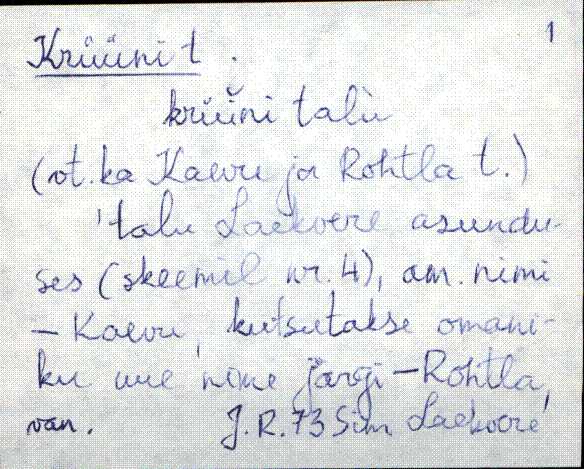 1
Krüüni t.
krüüni talù
(vt. ka Kaevu ja Rohtla t.)
'talu Laekvere asundu-
ses (skeemil nr. 4), am. nimi
– Kaevu, kutsutakse omani-
ku uue nime järgi – Rohtla,
van. J.R. 73 Sim Laekvere